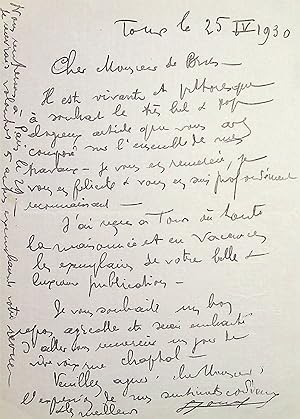 Tours le 25 IV 1930
Cher Monsieur de Brus –
Il est vivant et pittoresque
à souhait le très bel &
élogieux article que vous avez
composé sur l'ensemble de mes
travaux – Je vous en remercie, je
vous en félicite & vous en suis profondément
reconnaissant –
J'ai reçu à Tours où toute
la maisonnée est en vacances
les exemplaires de votre belle &
luxueuse publication –
Je vous souhaite un bon
repos et serai enchanté
d'aller vous remercier un jour de
vive voix rue Chaptal –
Veuillez agréer, cher Monsieur,
l'expression de mes sentiments cordiaux
les meilleurs
Nous rentrerons à Paris le 29 –
Je voudrais 5 autres exemplaires votre